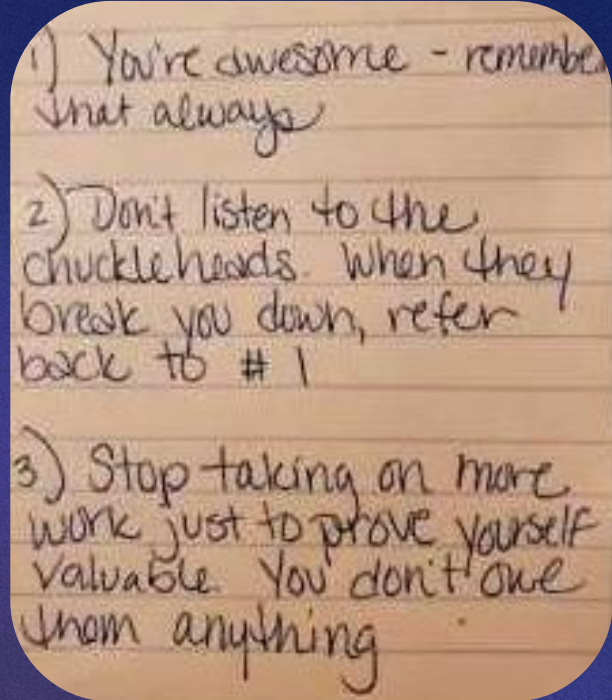 1) You're awesome - remember
that always
2) Don't listen to the
chuckleheads. When they
break you down, refer
back to # 1
3) Stop taking on more
work just to prove yourself
valuable. You don't owe
them anything